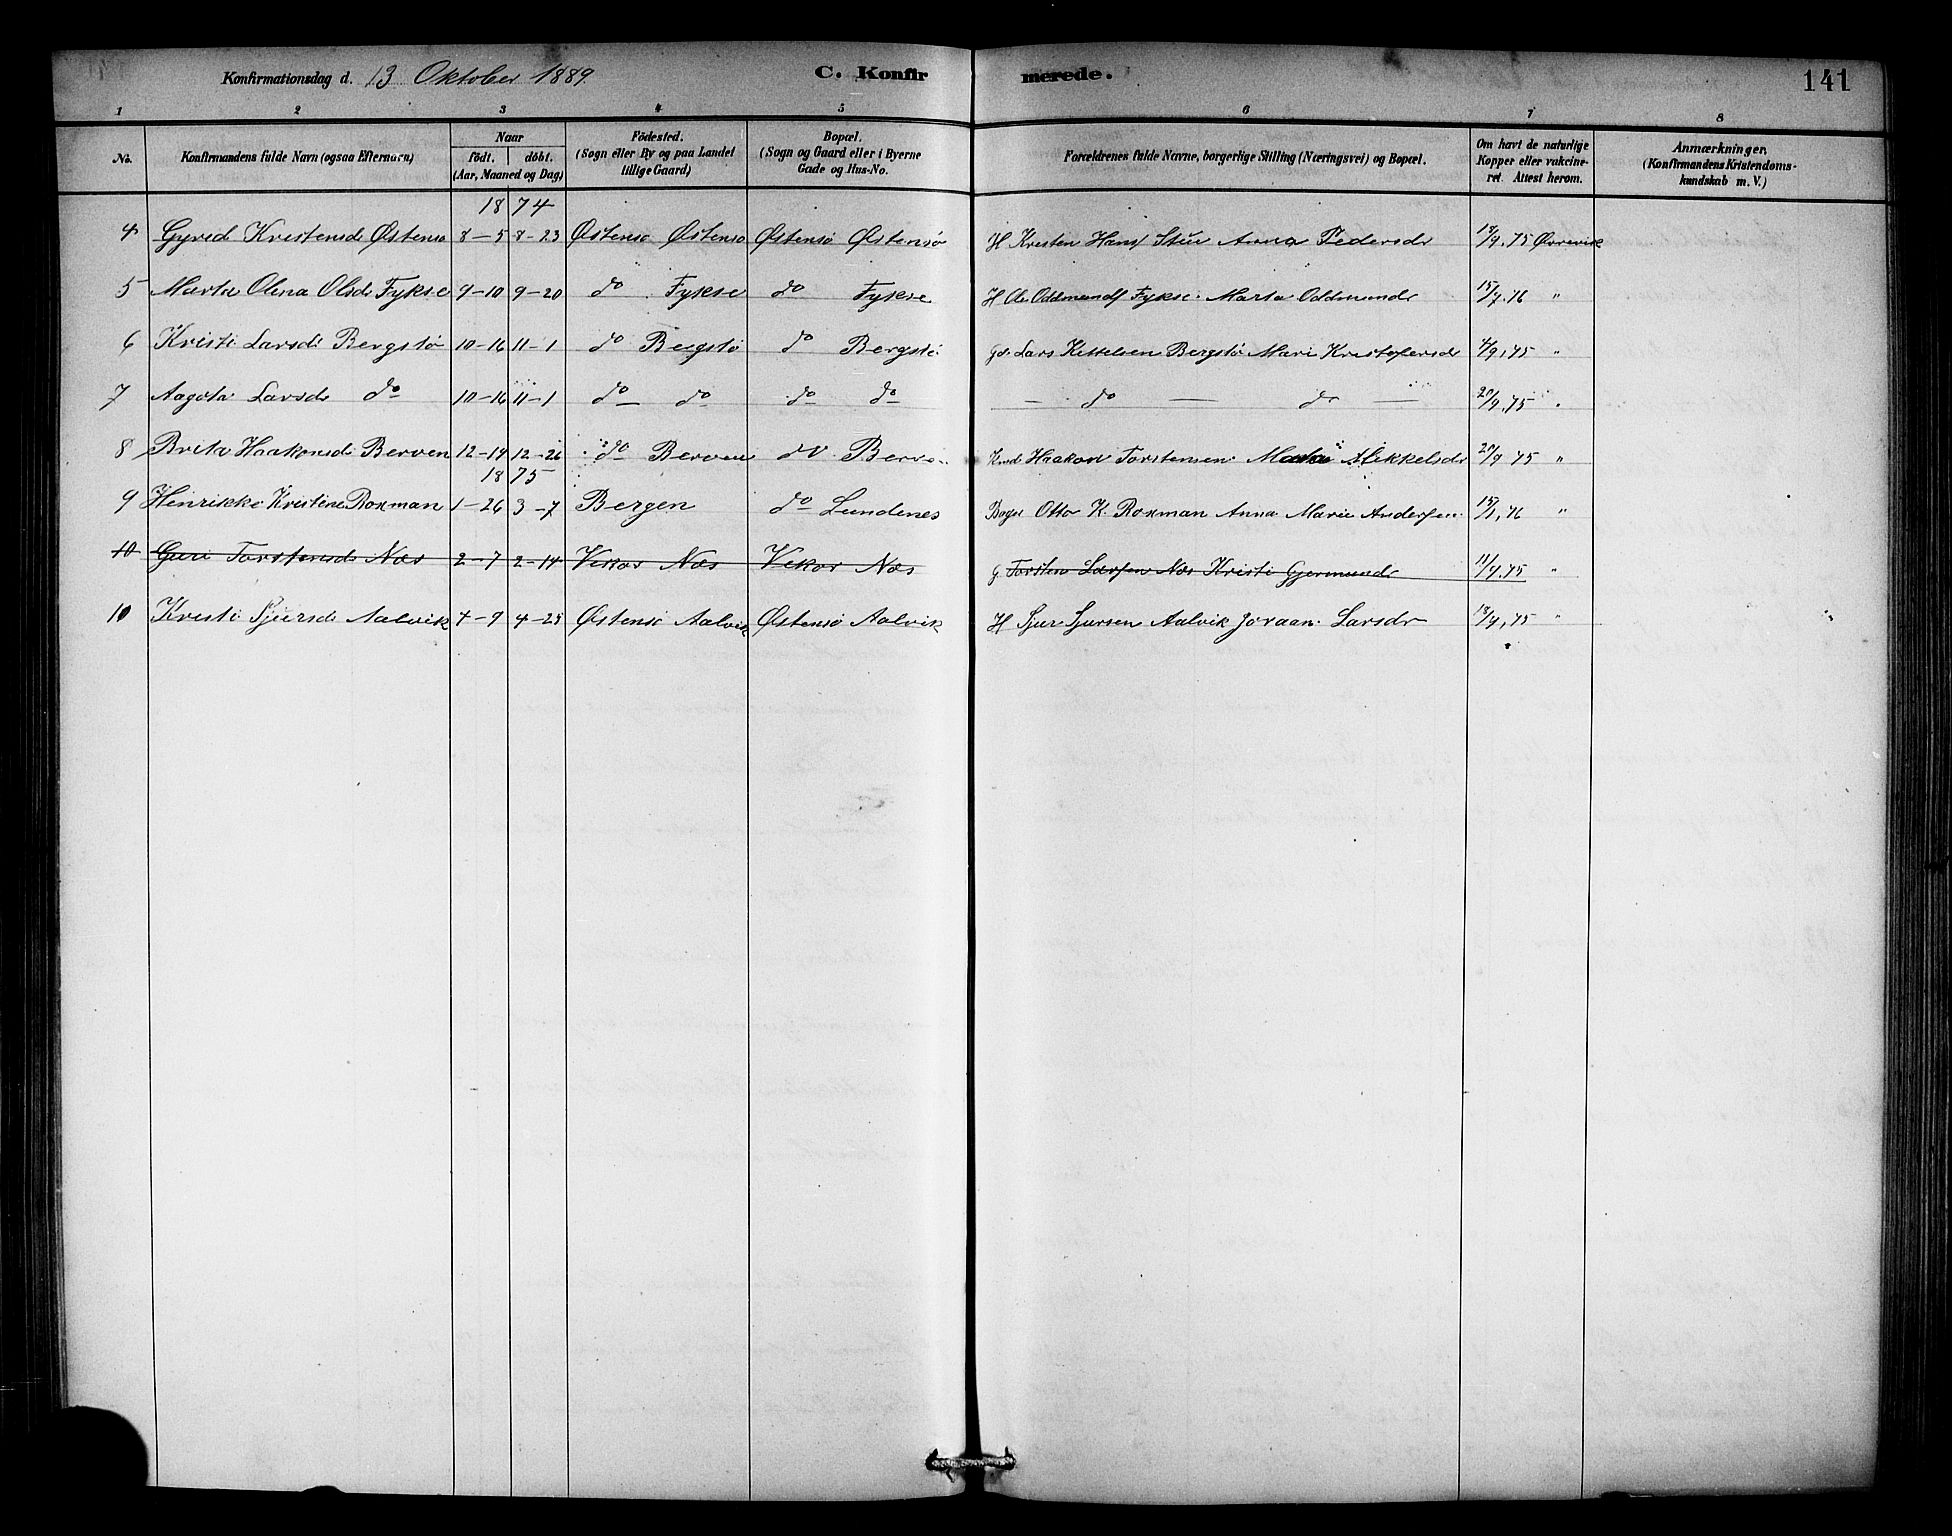 Konfirmationsdag d. 13 Oktober 1889. C. Konfirmerede. 141
1 2 3 4 5 6 7 8
No. Konfirmandens fulde Navn (ogsaa Efternavn) Naar født. døbt. (Aar, Maaned og Dag) Fødested. (Sogn eller By og paa Landet tillige Gaard) Bopæl. (Sogn og Gaard eller i Byerne Gade og Hus-No. Forældrenes fulde Navne, borgerlige Stilling (Næringsvei) og Bopæl. Om havt de naturlige Kopper eller vakcineret. Attest herom. Anmærkninger. (Konfirmandens Kristendomskundskab m. V.)
1874
4 Gyrid Kristensdr Østensø 8-5 8-23 Østensø Østensø Østensø Østensø H Kristen Hans Anna Pedersdr 18/9,75 Øvrevik
5 Marta Olena Olsdr Fykse 9-10 9-20 do Fykse do Fykse H Ole Oddmunds Fykse. Marta Oddmundr 15/7.76 "
6 Kristi Larsdr Bergstø 10-16 11-1 do Bergstø do Bergstø. Lars Kettelsen Bergstø Mari Kristofersdr 4/9,75 "
7 Aagota Larsdr do 10-16 11-1 do do do do — do — do — 20/9,75 "
8 Brita Haakonsdr Berven 12-19 12-26 do Berven do Berve Haakon Torstensen. Mikkelsdr 20/9 75 "
1875
9 Henrikke Kristine Roxman 1-26 3-7 Bergen do Lundenes Otto K. Roxman Anna Marie Andersen. 15/1,76 "
10 Guri Torstensdr Næs 2-7 2-14 Vikør Næs Vikør Næs G. Torsten Larsen Næs Kristi Gjermundr 11/9.75 "
10 Kristi Sjursdr Aalvik 4-9 4-25 Østensø Aalvik Østensø Aalvik H Sjur Sjursen Aalvik Joraan. Larsdr 18/9,75 "